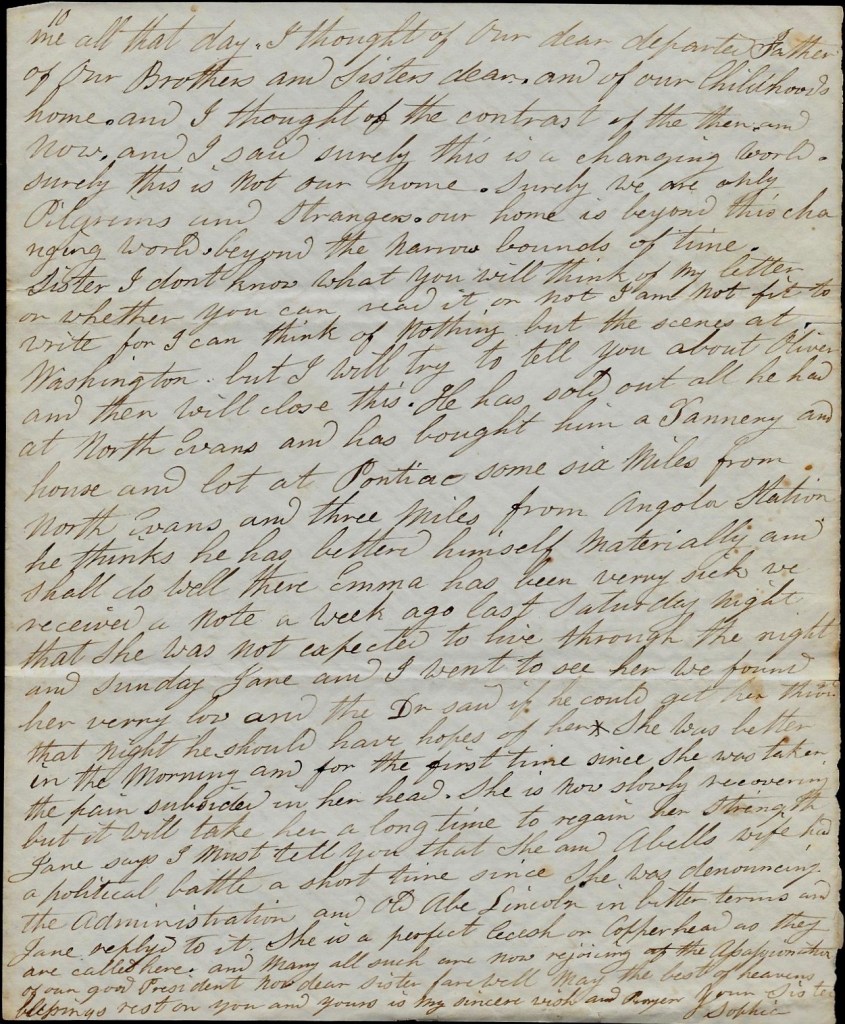 10
me all that day. I thought of Our dear departed Father
of Our Brothers and Sisters dear. and of our Childhoods
home. and I thought of the contrast of the then. and
Now. and I said surely this is a changing world.
surely this is not our home. Surely we are only
Pilgrims and Strangers. our home is beyond this cha
nging world. beyond the narrow bounds of time.
Sister I dont know what you will think of my letter
or whether you can read it or not I am not fit to
write for I can think of Nothing but the scenes at
Washington. but I will try to tell you about Oliver
and then will close this. He has sold out all he had
at North Evans and has bought him a Tannery and
house and lot at Pontiac some six Miles from
North Evans and three Miles from Angola Station
he thinks he has betterd himself Materially and
shall do well there Emma has been verry sick we
received a Note a week ago last Saturday night
that She was not expected to live through the night
and Sunday Jane and I went to see her we found
her verry low and the Dr said if he could get her throu
that night he should have hopes of her x She was better
in the Morning and for the first time since She was taken
the pain subsided in her head. She is now slowly recovering
but it will take her a long time to regain her Strength
Jane says I Must tell you that She and Abells wife had
a political battle a short time since She was denouncing
the Administration and Old Abe Lincoln in bitter terms and
Jane replyd to it. She is a perfect Cecesh or Copperhead as they
are called here. and Many all such are now rejoicing at the
of our good President Now dear sister farewell May the best of heavens
blessings rest on you and yours is my sincere wish and Prayer Your Sister
Sophie